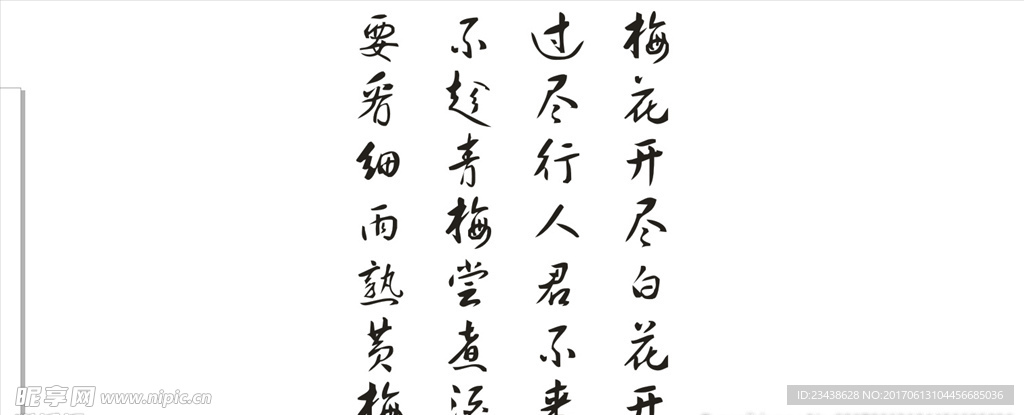 梅花开尽白花开
过尽行人君不来
不趁青梅尝煮酒
要看细雨熟黄梅
昵享网 www.nipic.cn
ID:23438628 NO:20170613104456685036